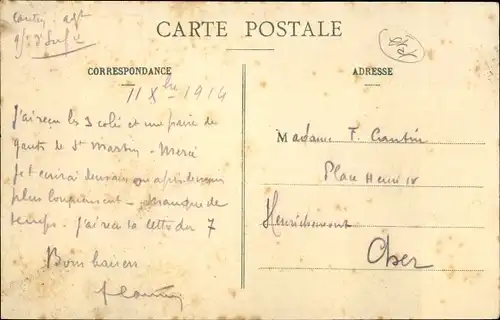 CARTE POSTALE
CORRESPONDANCE
ADRESSE
11 Xbre 1914
J'ai reçu les 3 colis et une paire de
gants de St Martin - Merci
Je t'écrirai demain ou après demain
plus longuement - manque de
temps. J'ai reçu ta lettre du 7
Bons baisers
Madame F. Cantin
Place Henri IV
Henrichemont
Cher